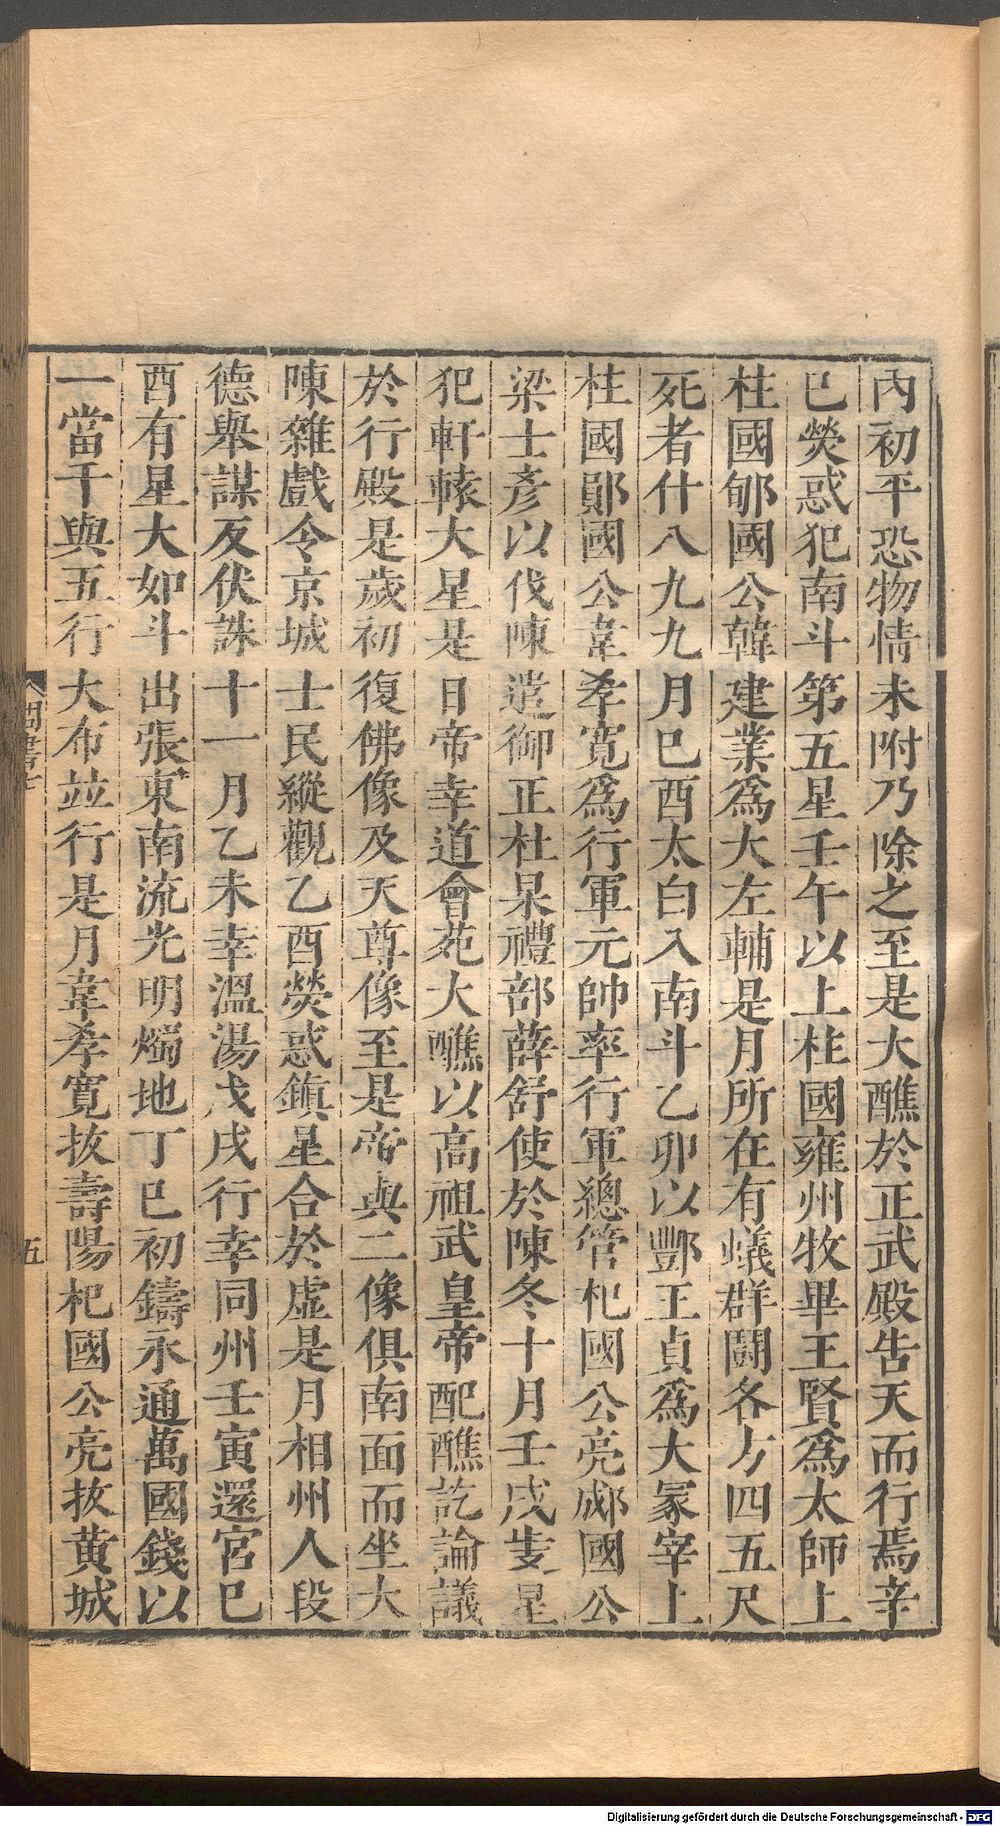 內初平恐物情未附乃除之至是大醮於正武殿告天而行焉辛
巳熒惑犯南斗第五星壬午以上柱國雍州牧畢王賢爲太師上
柱國郇國公韓建業爲大左輔是月所在有蟻群鬪各方四五尺
死者什八九九月己酉太白入南斗乙卯以酆王貞爲大冢宰上
柱國鄖國公韋孝寬爲行軍元帥率行軍總管杞國公亮郕國公
梁士彥以伐陳遣御正杜杲禮部薛舒使於陳冬十月壬戌歲星
犯軒轅大星是日帝幸道會苑大醮以高祖武皇帝配醮訖論議
於行殿是歲初復佛像及天尊像至是帝與二像俱南面而坐大
陳雜戲令京城士民縱觀乙酉熒惑鎮星合於虛是月相州人段
德舉謀反伏誅十一月乙未幸溫湯戊戌行幸同州壬寅還宮己
酉有星大如斗出張東南流光明燭地丁巳初鑄永通萬國錢以
一當千與五行大布並行是月韋孝寬拔壽陽杞國公亮拔黃城
周書七
五
Digitalisierung gefördert durch die Deutsche Forschungsgemeinschaft - DFG